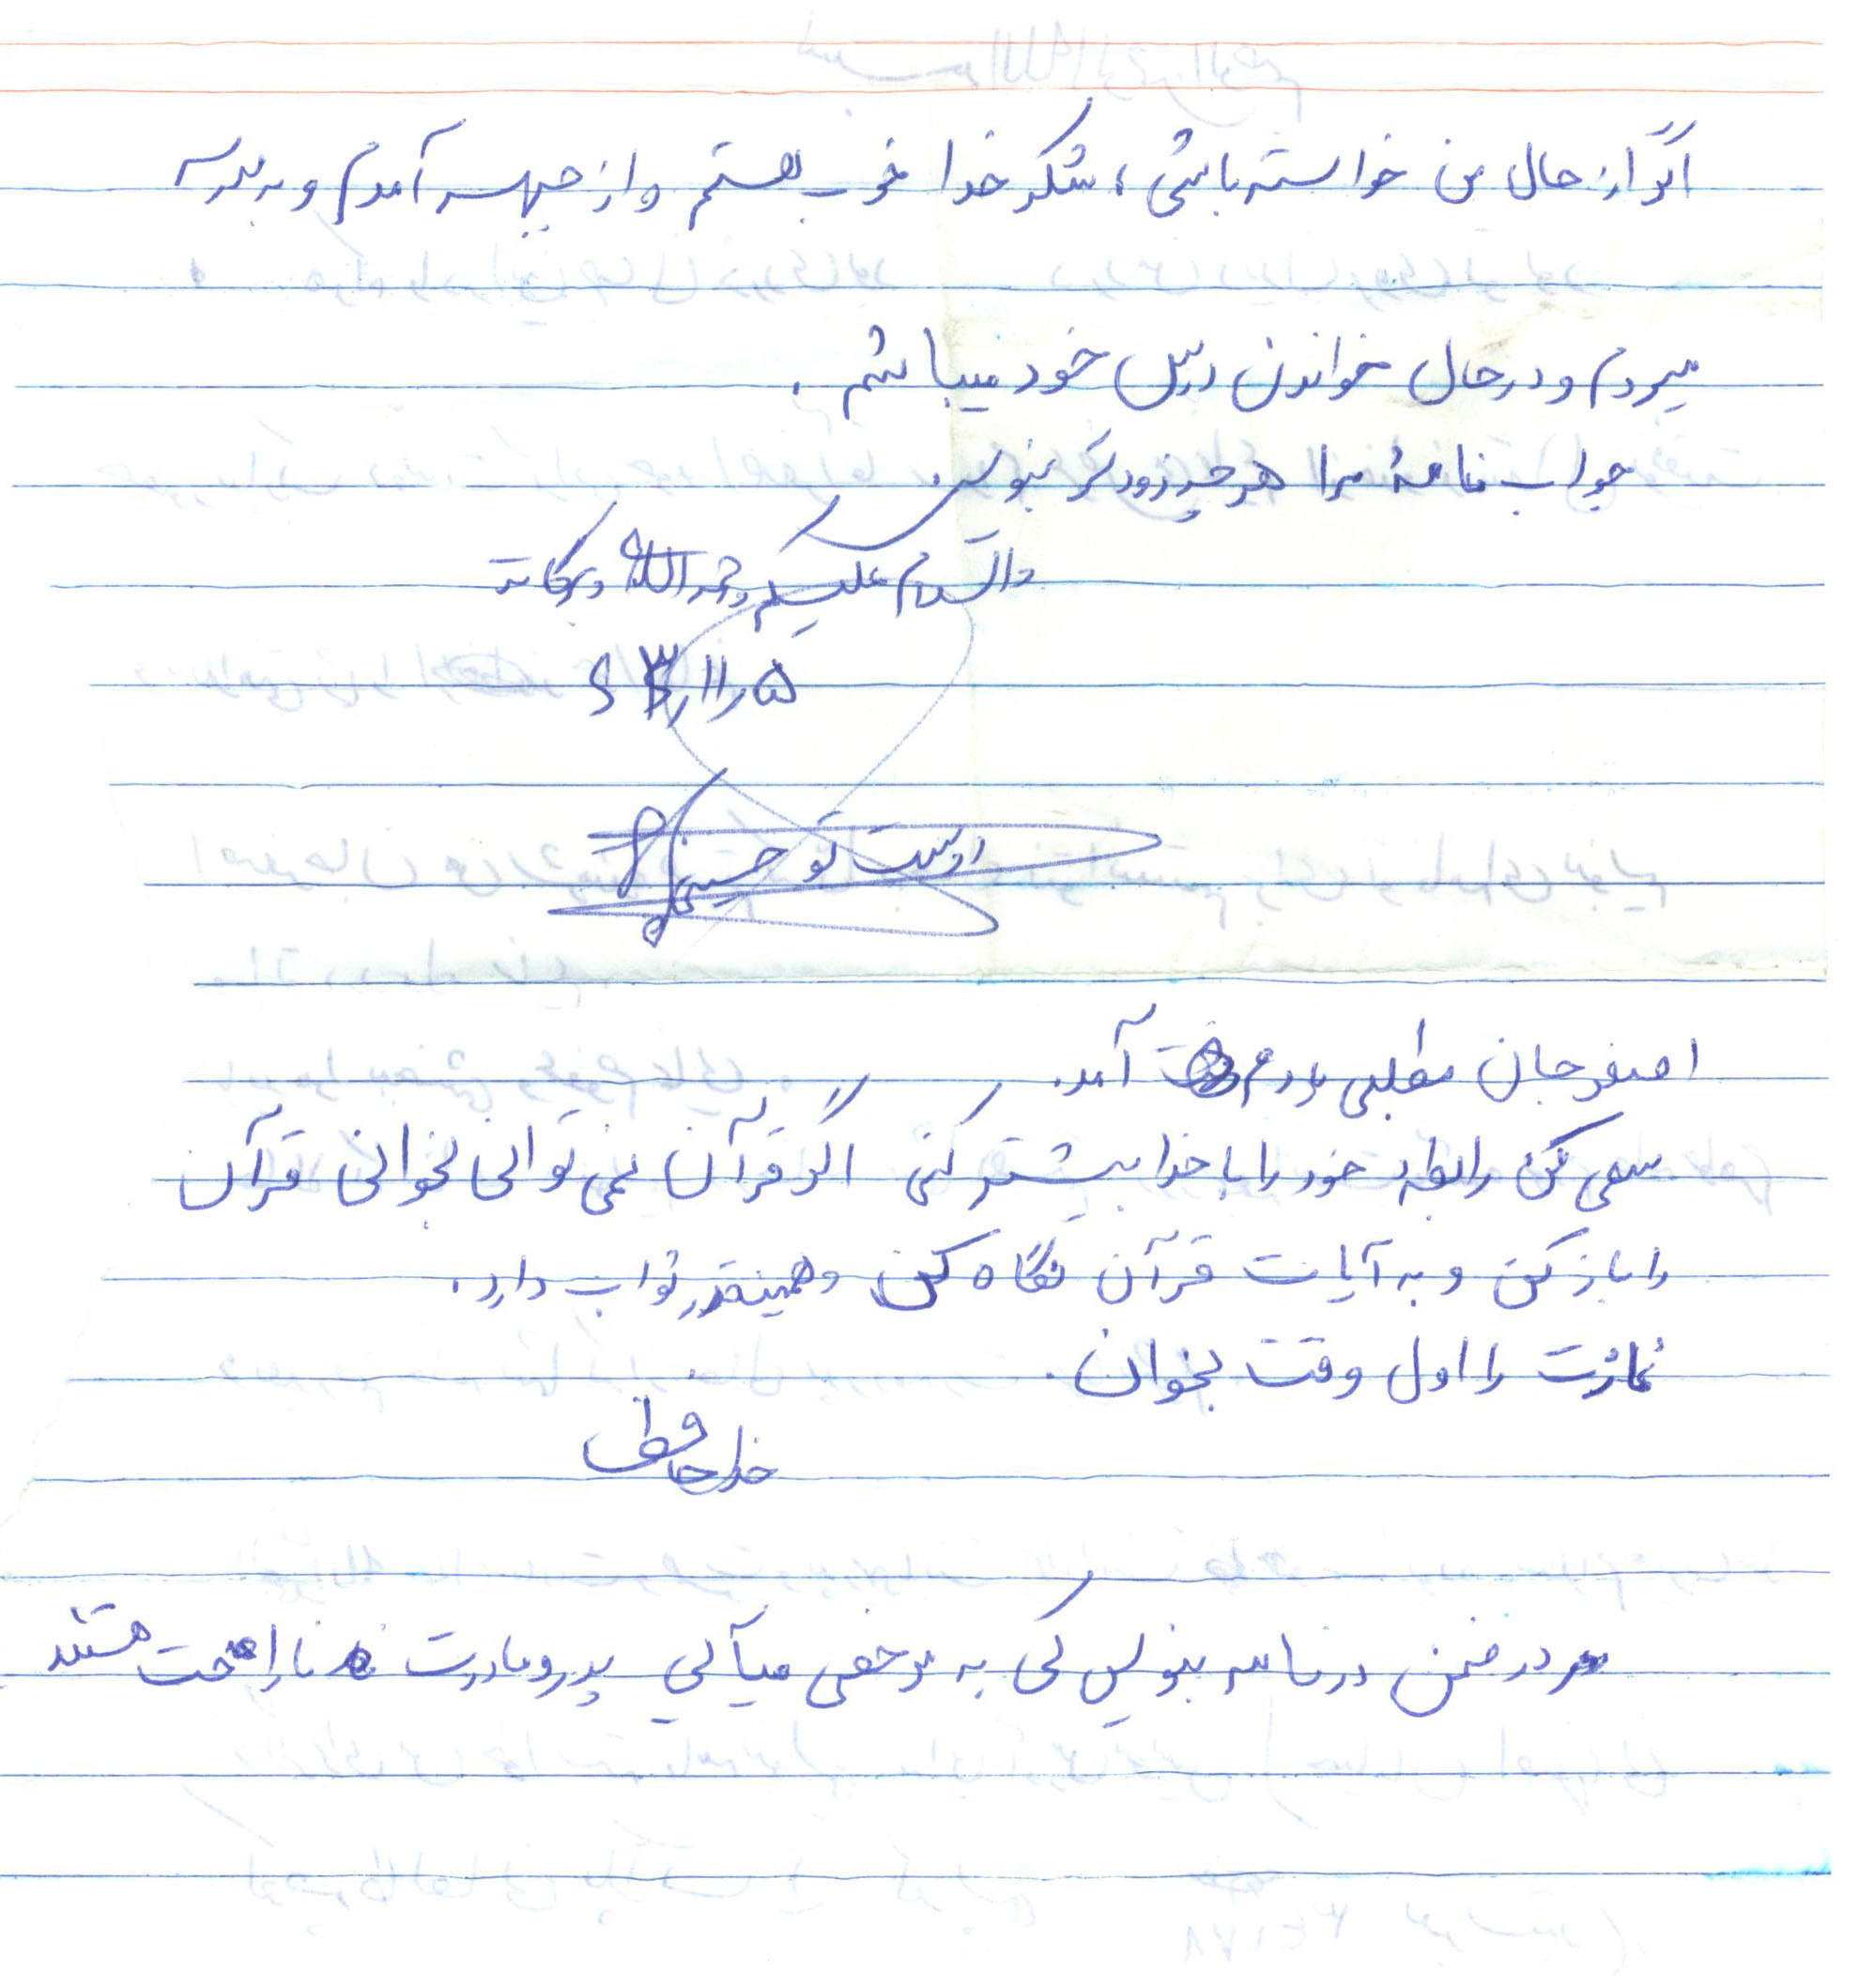 اگر از حال من خواسته باشی، شکر خدا خوب هستم و از جبهه آمدم و به مدرسه
میروم و در حال خواندن درس خود میباشم.
جواب نامهٔ مرا هر چه زودتر بنویس.
والسلام علیکم و رحمة الله و برکاته
۵ر۱۱ر۶۳
دوست تو حسین
اصغر جان مطلبی یادم آمد.
سعی کن رابطه خود را با خدا بیشتر کنی اگر قرآن نمی توانی بخوانی قرآن
را باز کن و به آیات قرآن نگاه کن و همینقدر ثواب دارد.
نمازت را اول وقت بخوان.
خداحافظ
در ضمن در نامه بنویس کی به مرخصی میآئی پدر و مادرت ناراحت هستند